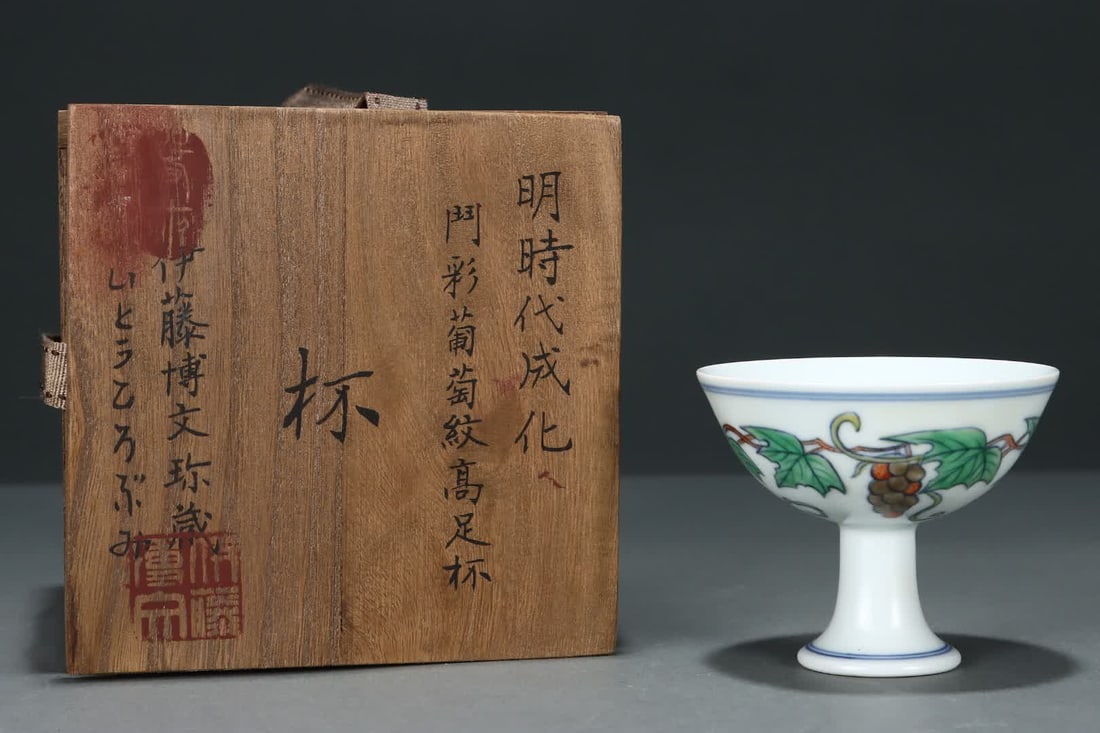 明時代成化
鬥彩葡萄紋高足杯
杯
伊藤博文珍蔵
いとうひろぶみ